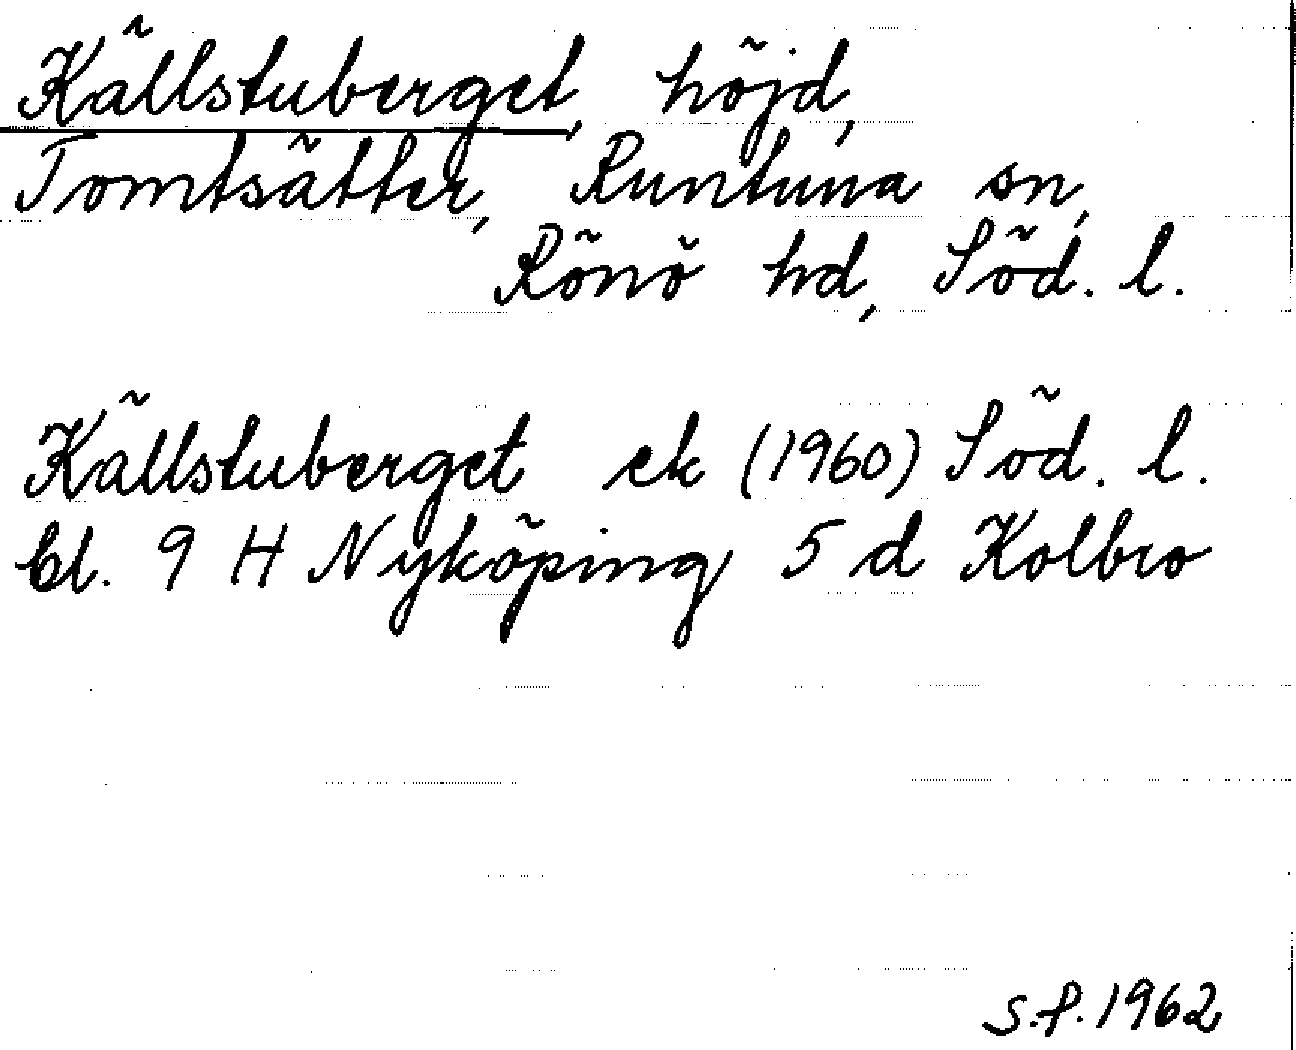 Källstuberget, höjd,
Tomtsätter, Runtuna sn,
Rönö hd, Söd. l.
Källstuberget ek (1960) Söd. l.
bl. 9 H Nyköping 5 d Kolbro
S.f. 1962